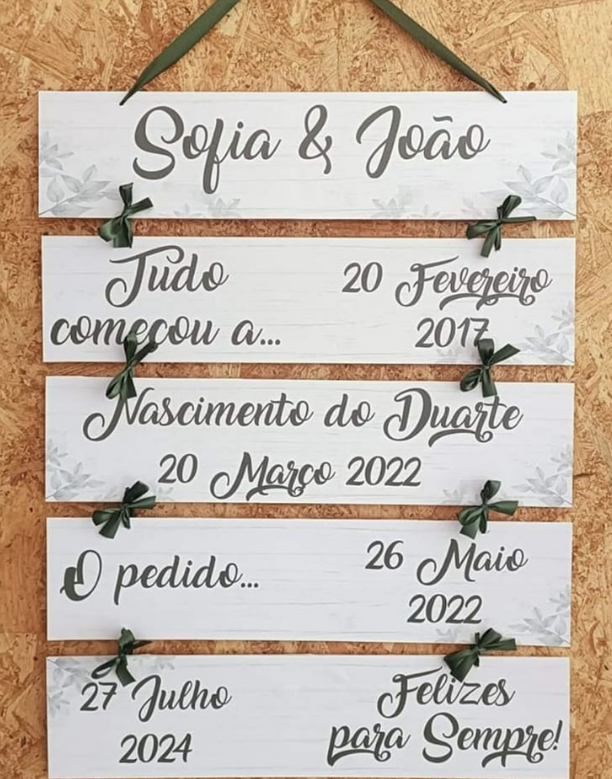 Sofia & João
Tudo
começou a...
20 Fevereiro
2017
Nascimento do Duarte
20 Março 2022
O pedido...
26 Maio
2022
27 Julho
2024
Felizes
para Sempre!